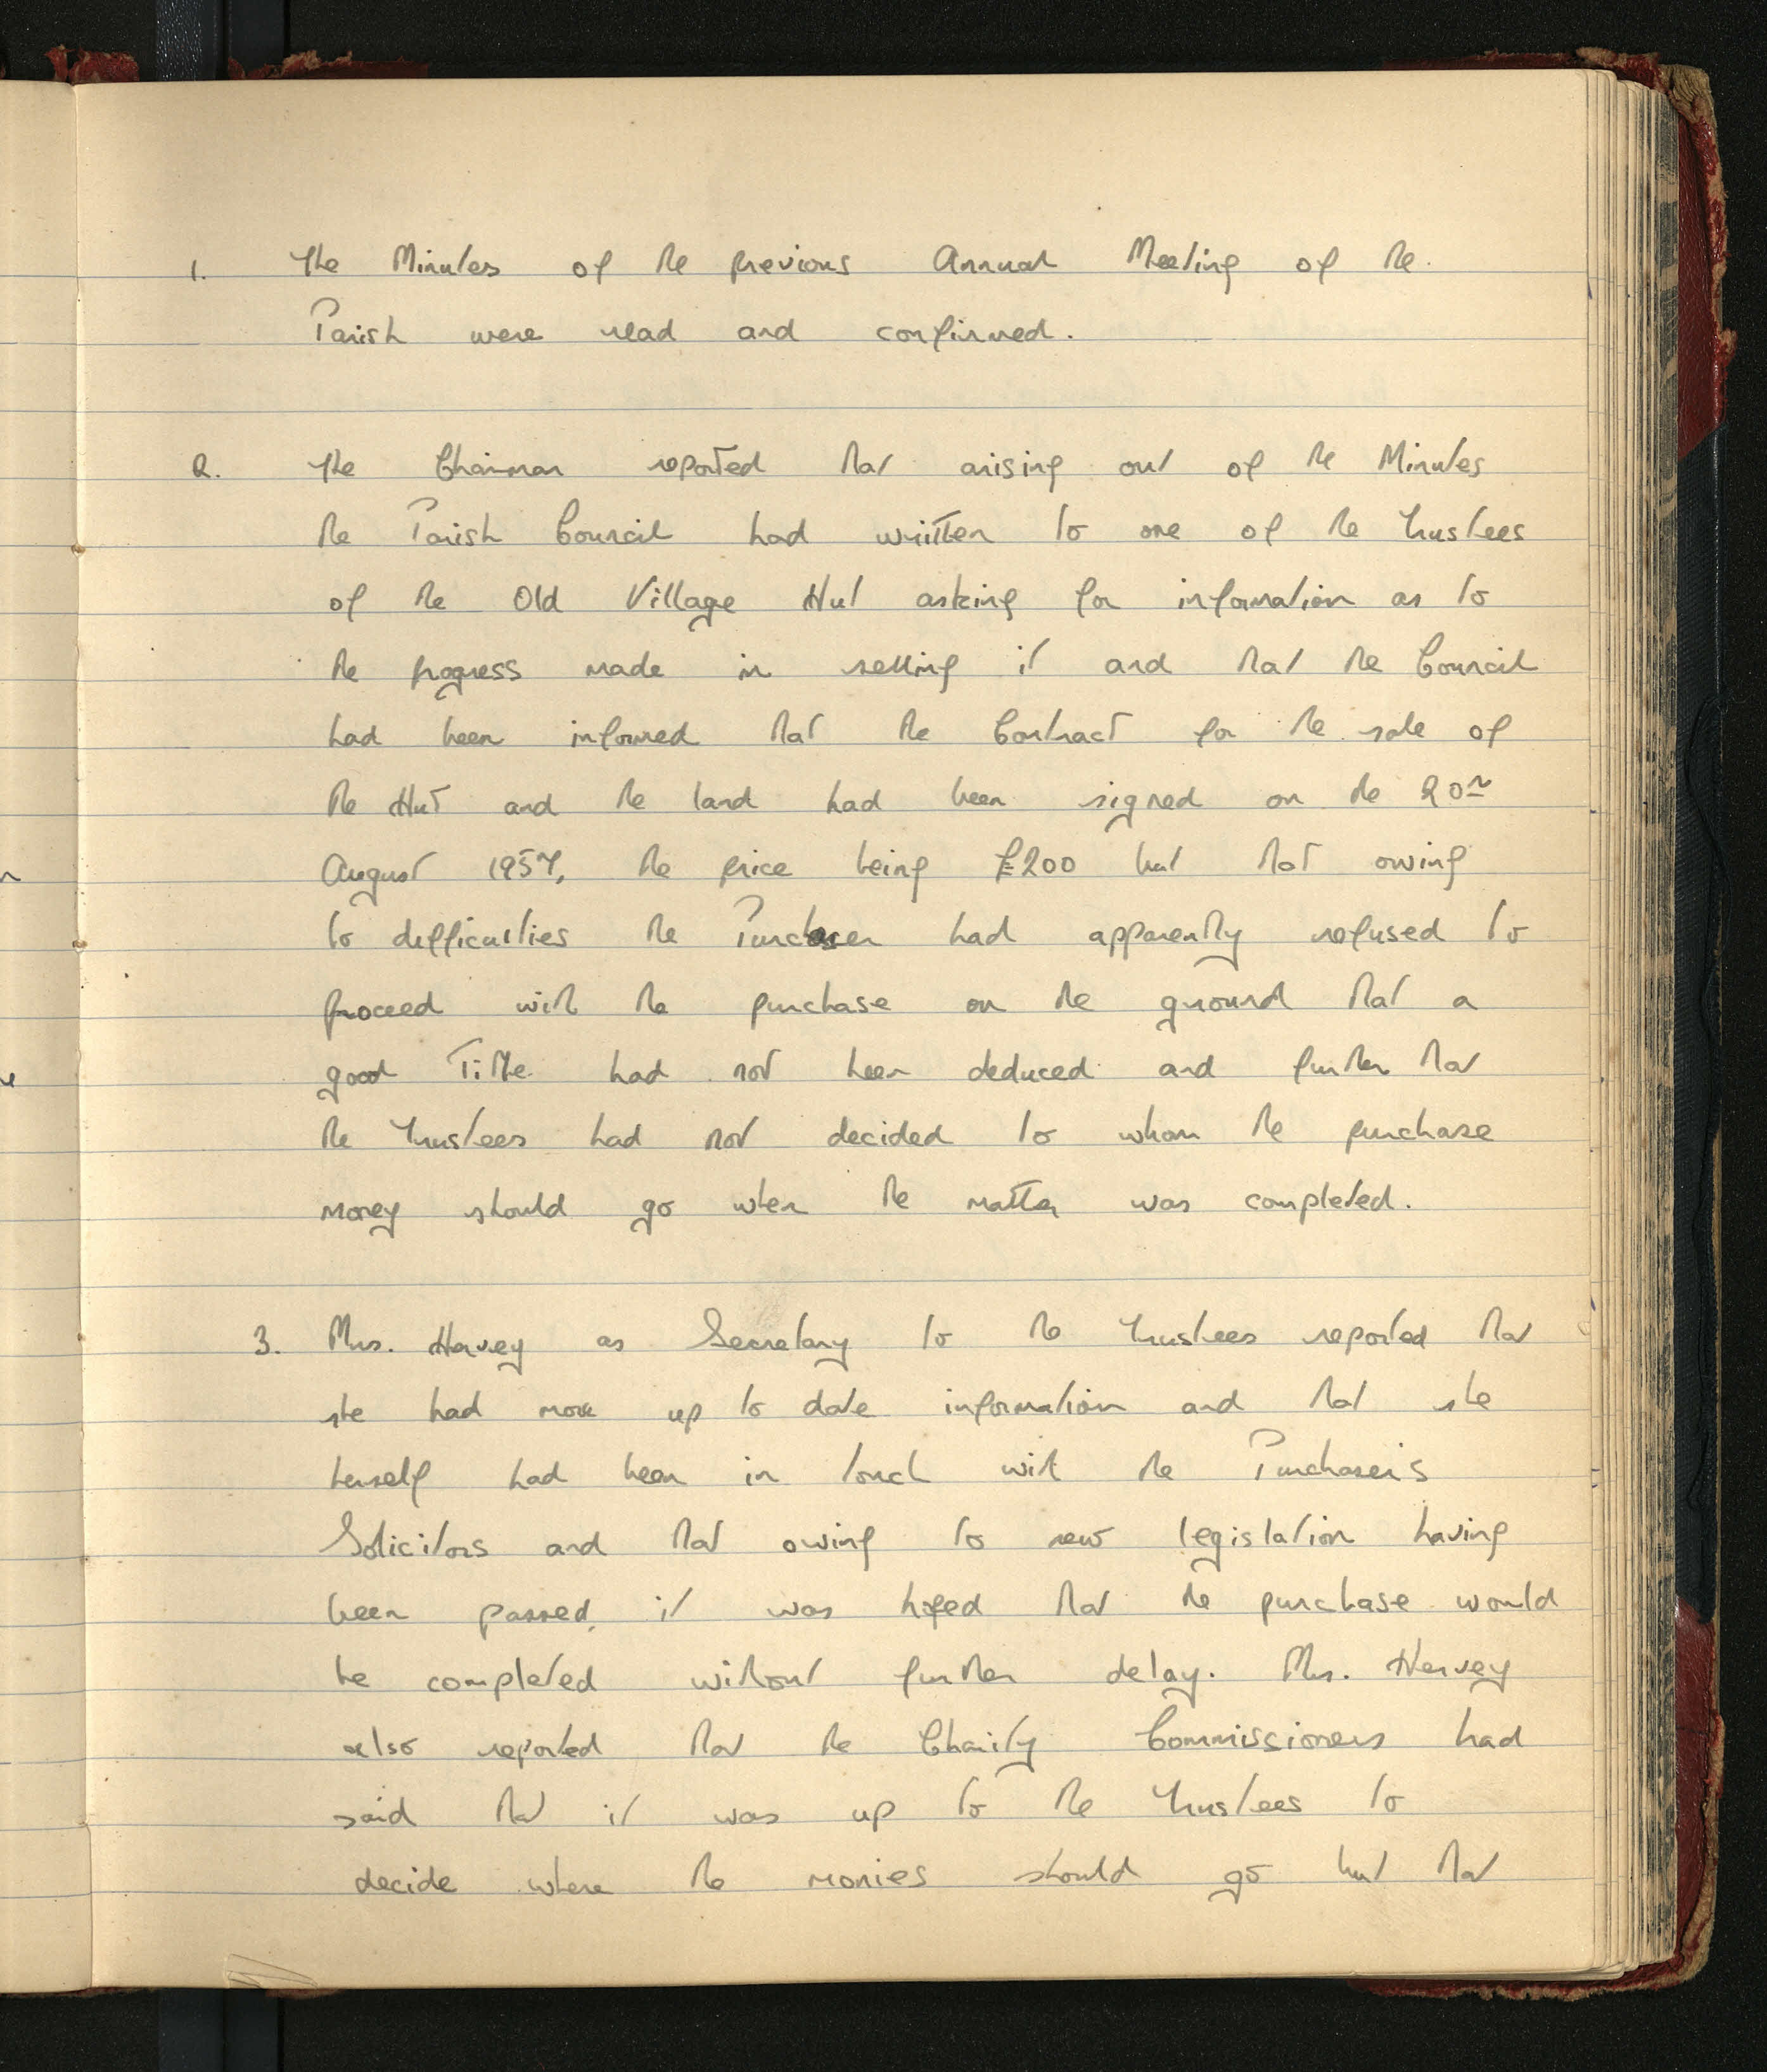 1. The Minutes of the previous Annual Meeting of the
Parish were read and confirmed.
2. The Chairman reported that arising out of the Minutes
the Parish Council had written to one of the Trustees
of the Old Village Hut asking for information as to
the progress made in selling it and that the Council
had been informed that the Contract for the sale of
the Hut and the land had been signed on the 20th
August 1957, the price being £200 but that owing
to difficulties the Purchaser had apparently refused to
proceed with the purchase on the ground that a
good Title had not been deduced and further that
the Trustees had not decided to whom the purchase
money should go when the matter was completed.
3. Mrs. Harvey as Secretary to the Trustees reported that
she had more up to date information and that she
herself had been in touch with the Purchaser's
Solicitors and that owing to new legislation having
been passed, it was hoped that the purchase would
be completed without further delay. Mrs. Harvey
also reported that the Charity Commissioners had
said that it was up to the Trustees to
decide where the monies should go but that